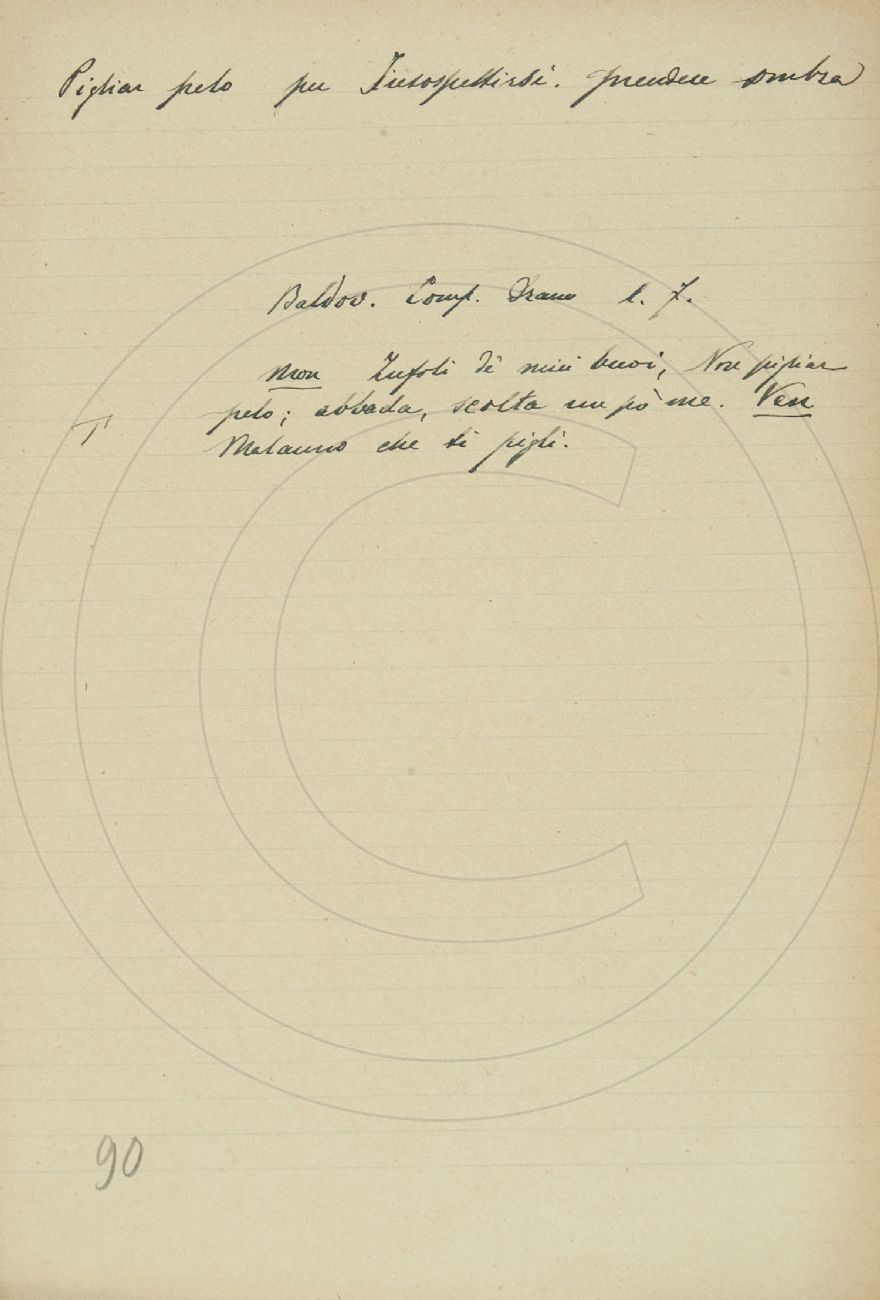 Pigliar pelo per Insospettirsi. prendere ombra
Baldov. Comp. Dram l. 7.
Mon Zufoli di miei buoi, Non pigliar
pelo; abbada, scolta un pò me. Ven
Malanno che ti pigli.
T
90